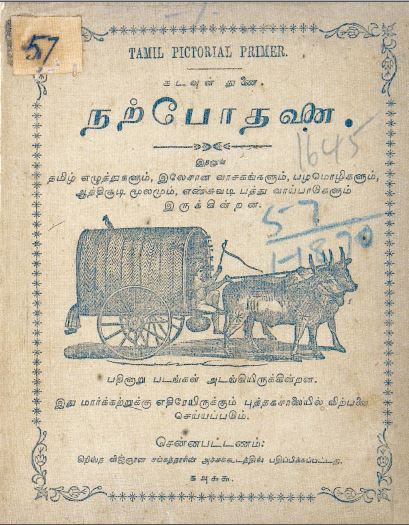 57
TAMIL PICTORIAL PRIMER.
கடவுள் துணை.
நற்போதனை.
1645
இதனுள்
தமிழ் எழுத்துகளும், இலேசான வாசகங்களும், பழமொழிகளும்,
ஆத்திசூடி மூலமும், எண்சுவடி பத்து வாய்பாடுகளும்
இருக்கின்றன.
57
1-1890
பதினாறு படங்கள் அடங்கியிருக்கின்றன.
இது மார்க்கற்றுக்கு எதிரேயிருக்கும் புத்தகசாலையில் விற்பனை
செய்யப்படும்.
சென்னபட்டணம்:
கிறிஸ்த விஞ்ஞான சங்கத்தாரின் அச்சுக்கூடத்தில் பதிப்பிக்கப்பட்டது.